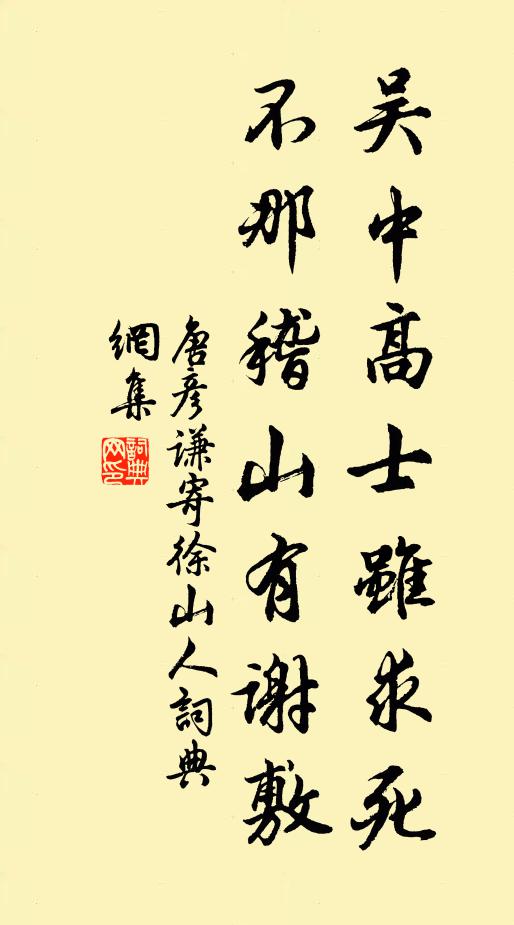 吴中高士雖求死
不那稽山有谢敷
唐彦谦寄徐山人詞典
網集
詞典网印